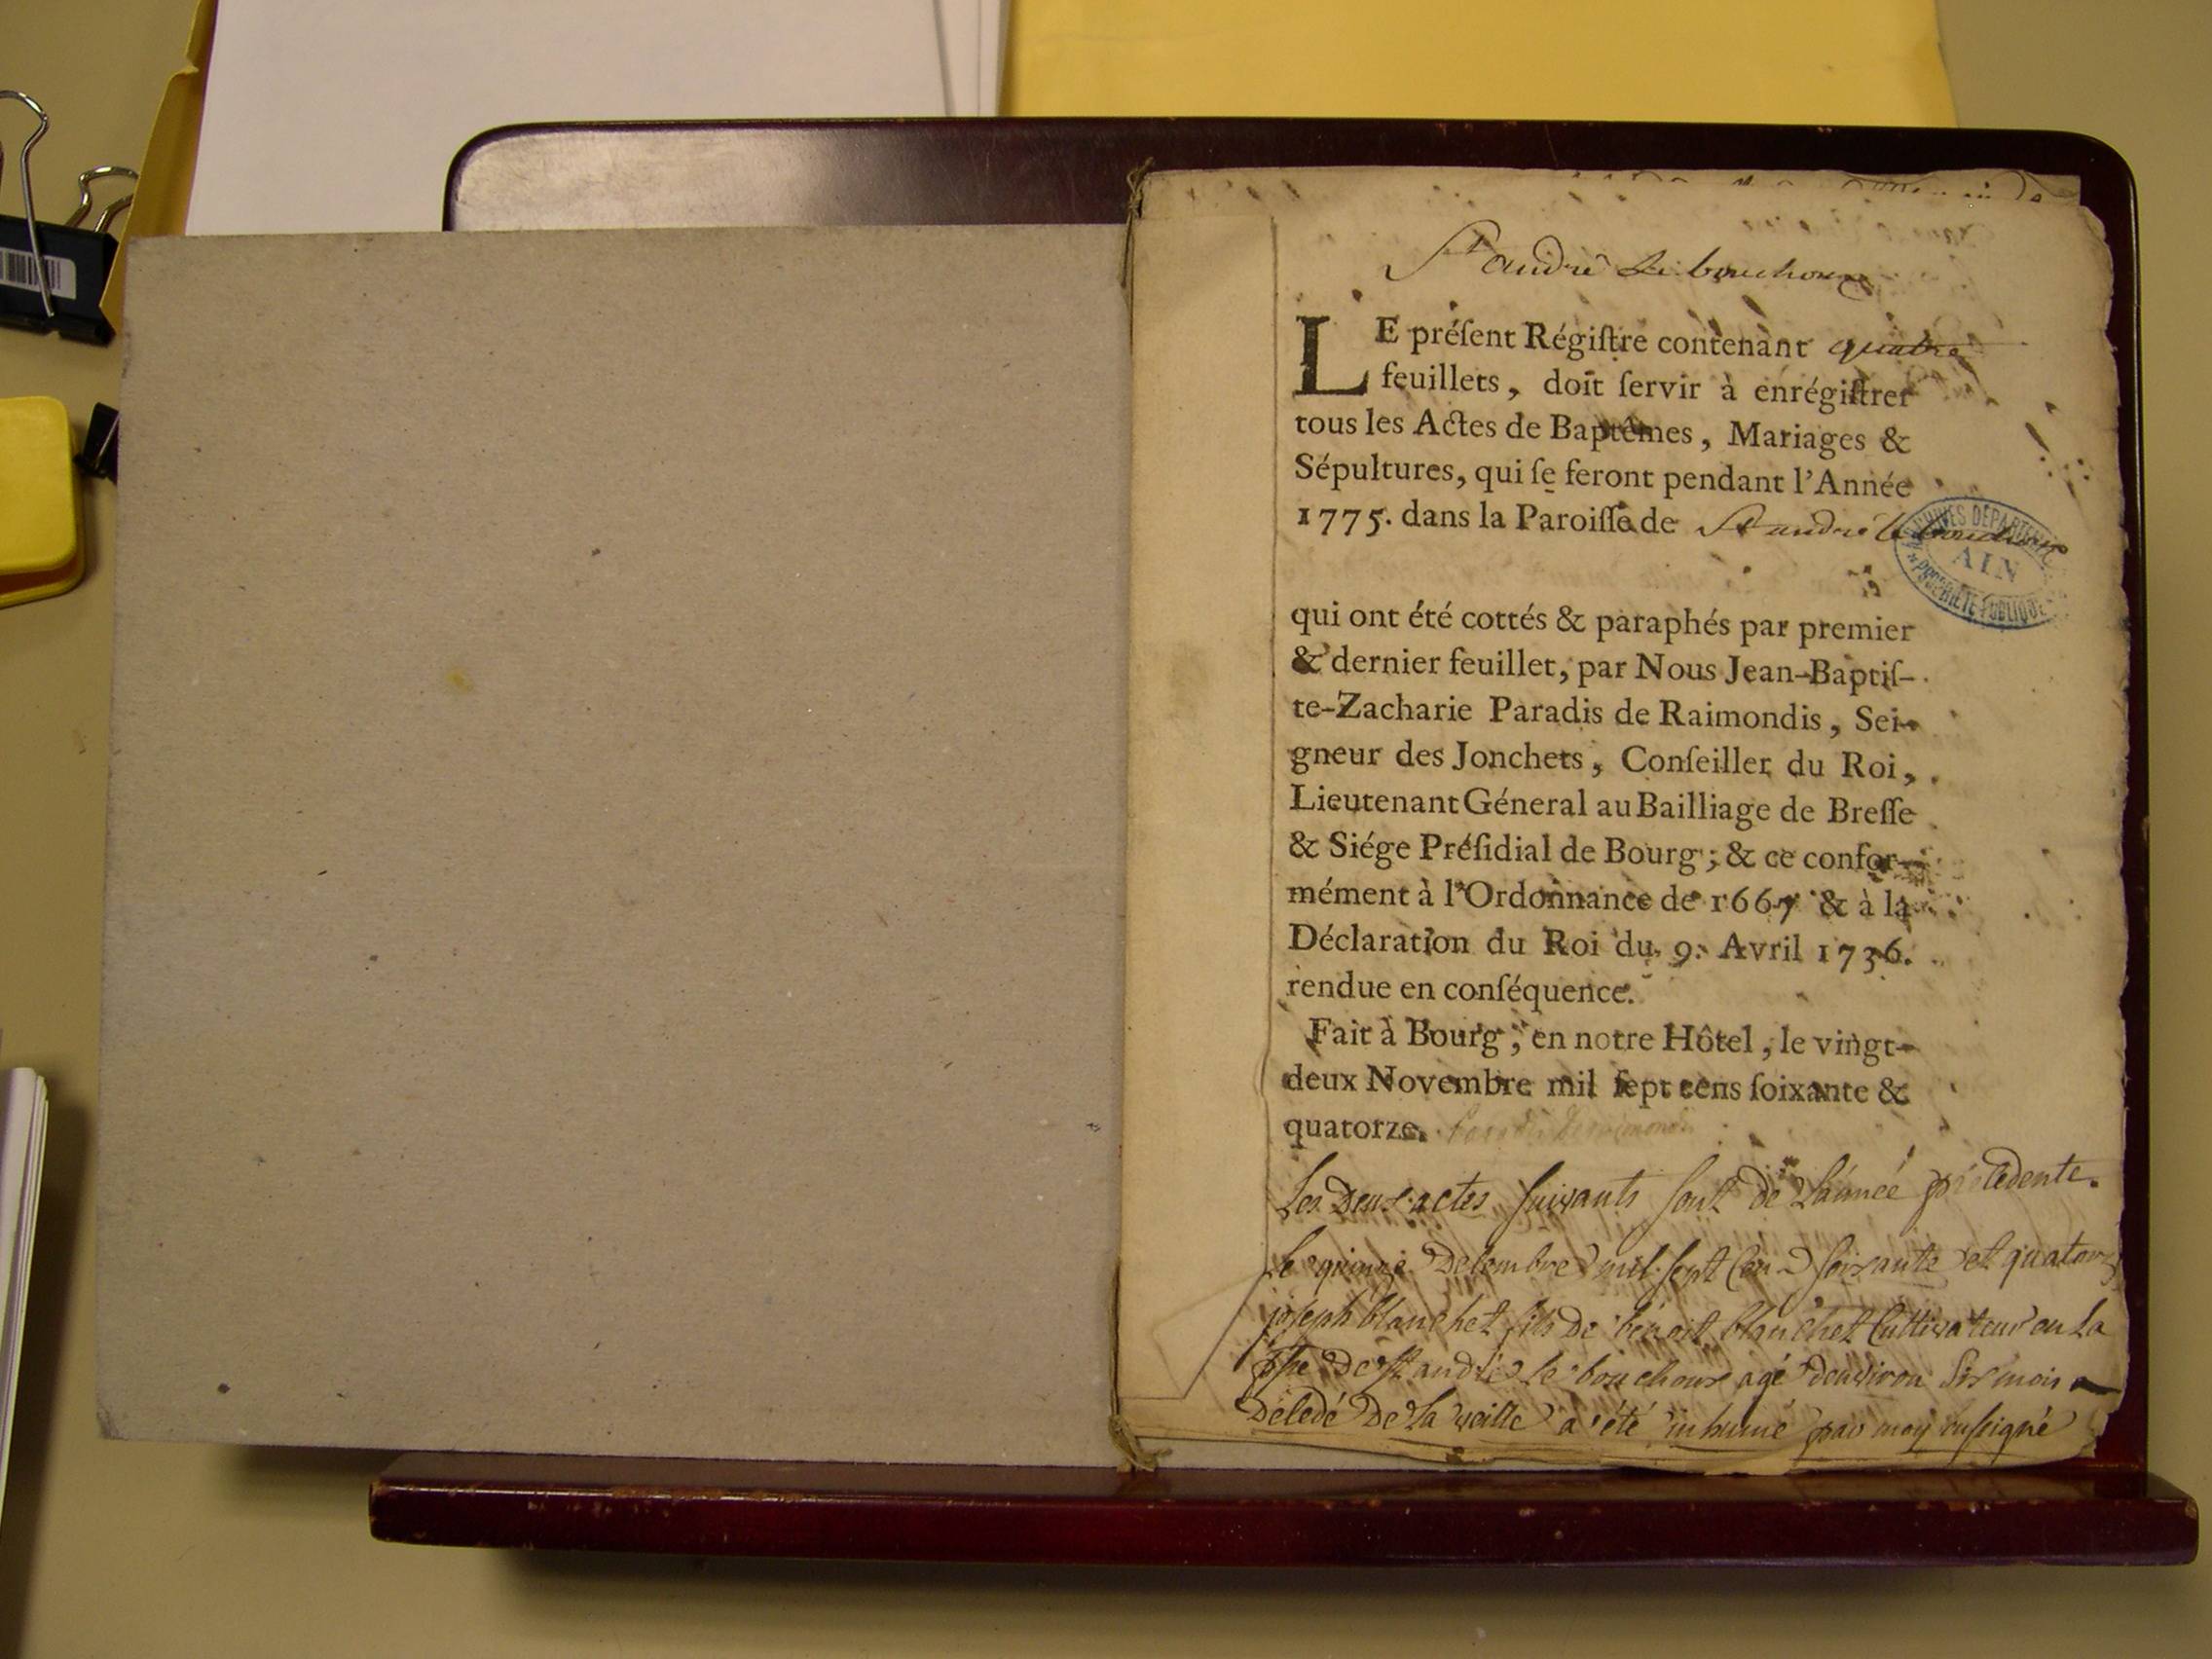 St andré Le bouchoux
LE préſent Régiſtre contenant quatre
feuillets, doit ſervir à enrégiſtrer
tous les Actes de Baptêmes, Mariages &
Sépultures, qui ſe feront pendant l'Année
1775. dans la Paroiſſe de St andré le bouchoux
ARCHIVES DÉPARTEMENTALES
AIN
PROPRIÉTÉ PUBLIQUE
qui ont été cottés & paraphés par premier
& dernier feuillet, par Nous Jean-Baptiſ-
te-Zacharie Paradis de Raimondis, Sei-
gneur des Jonchets, Conſeiller du Roi,
Lieutenant Géneral au Bailliage de Breſſe
& Siége Préſidial de Bourg; & ce confor-
mément à l'Ordonnance de 1667 & à la
Déclaration du Roi du 9. Avril 1736.
rendue en conſéquence.
Fait à Bourg, en notre Hôtel, le vingt-
deux Novembre mil ſept cens ſoixante &
quatorze. Paradis de raimondis
Les Deux actes suivants sont de L'année précédente.
le quinze Décembre mil sept cent soixante et quatorz
joseph blanchet fils de benoit blanchet Cultivateur en La
psse de st andré le bouchoux agé denviron six mois
Décedé De La veille a été inhumé par moy susigné